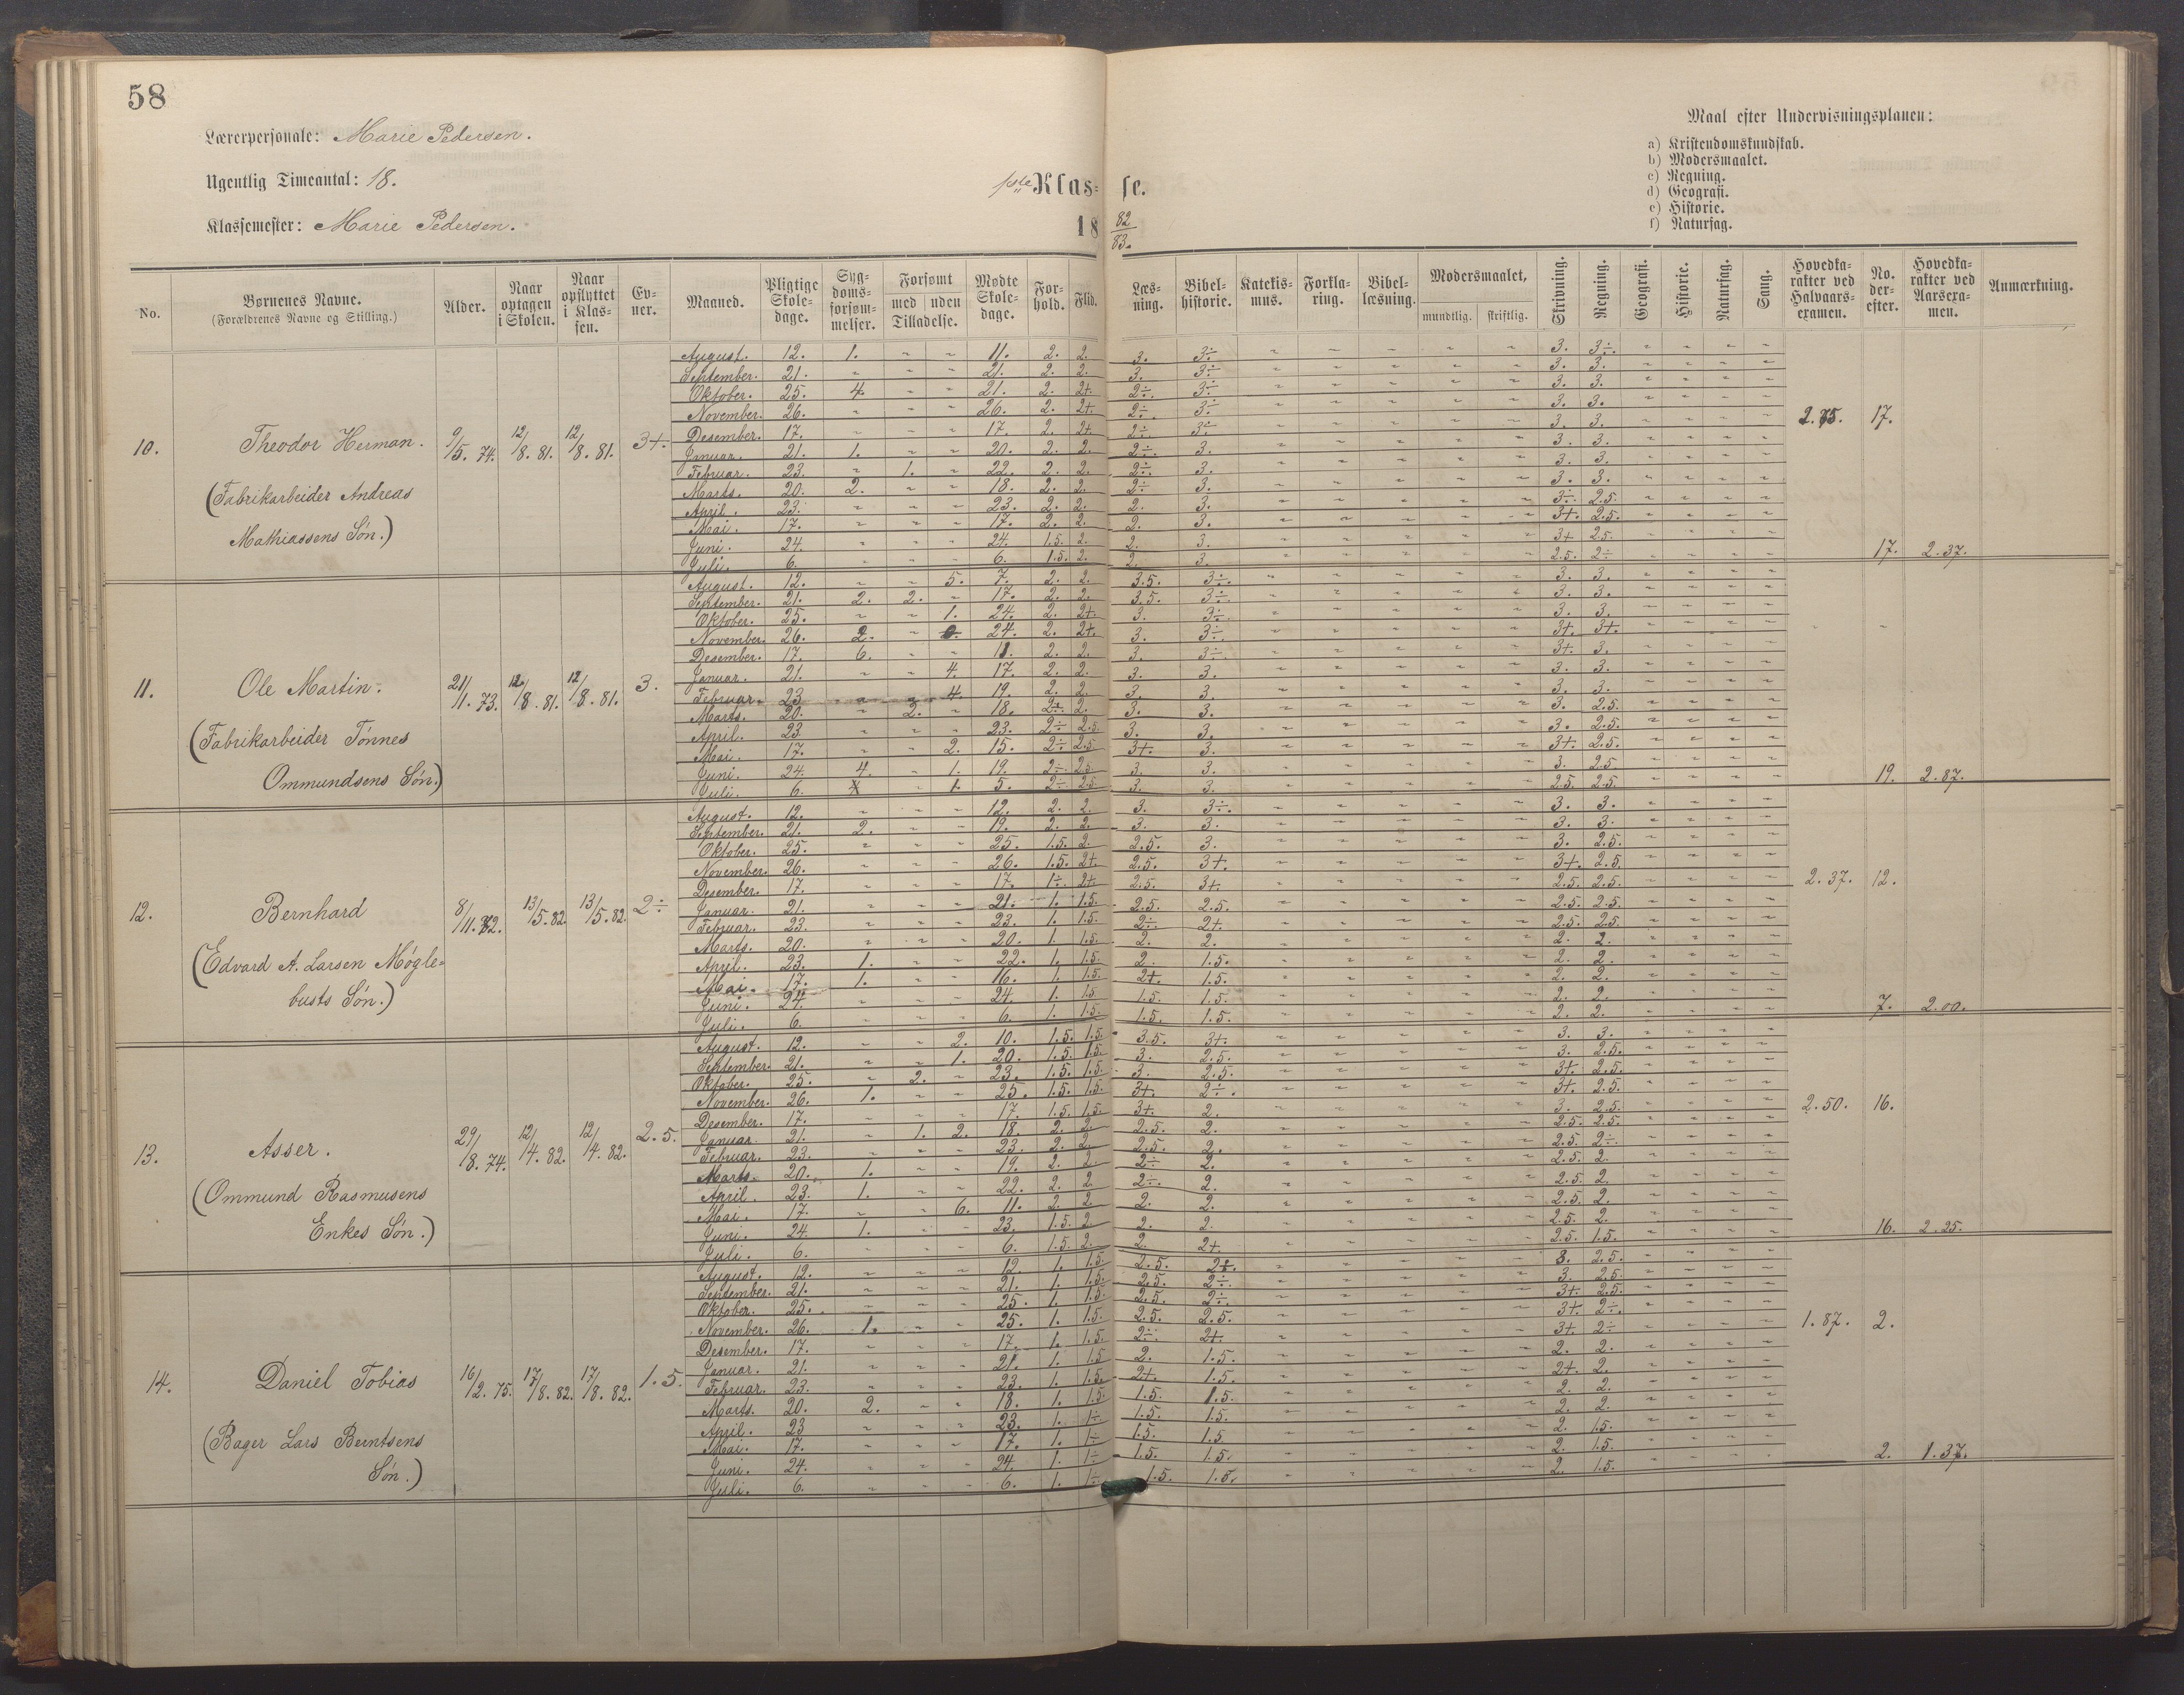 58
Lærerpersonale: Marie Pedersen.
Ugentlig Timeantal: 18.
Klassemester: Marie Pedersen.
1ste Klas- se.
18 82/83.
Maal efter Undervisningsplanen:
a) Kristendomskundskab.
b) Modersmaalet.
c) Regning.
d) Geografi.
e) Historie.
f) Naturfag.
No. | Børnenes Navne. (Forældrenes Navne og Stilling.) | Alder. | Naar optagen i Skolen. | Naar opflyttet i Klassen. | Evner. | Maaned. | Pligtige Skoledage. | Sygdomsforsømmelser. | Forsømt med uden Tilladelse. | Mødte Skoledage. | Forhold. | Flid. | Læsning. | Bibelhistorie. | Katekismus. | Forklaring. | Bibellæsning. | Modersmaalet, mundtlig. skriftlig. | Skrivning. | Regning. | Geografi. | Historie. | Naturfag. | Sang. | Hovedkarakter ved Halvaarsexamen. | No. derefter. | Hovedkarakter ved Aarsexamen. | Anmærkning.
10. Theodor Herman. 9/5. 74. 12/8. 81. 12/8. 81. 3+.
(Fabrikarbeider Andreas
Mathiassens Søn.)
August. 12. 1. " " 11. 2. 2. 3. 3÷. 3. 3÷.
September. 21. " " " 21. 2. 2. 3. 3÷ 3. 3.
Oktober. 25. 4. " " 21. 2. 2+. 2÷. 3÷ 3. 3.
November. 26. " " " 26. 2. 2+. 2÷. 3÷ 3. 3.
Desember. 17. " " " 17. 2. 2+. 2÷. 3÷ 3. 3. 2.75. 17.
Januar. 21. 1. " " 20. 2. 2. 2÷. 3. 3. 3.
Februar. 23. " 1. " 22. 2. 2. 2÷. 3. 3. 3.
Marts. 20. 2. " " 18. 2. 2. 2÷ 3. 3. 3.
April. 23. " " " 23. 2. 2. 2. 3. 3÷. 2.5.
Mai. 17. " " " 17. 2. 2. 2. 3. 3+. 2.5.
Juni. 24. " " " 24. 1.5. 2. 2. 3. 3+ 2.5.
Juli. 6. " " " 6. 1.5. 2. 2. 3. 2.5. 2÷ 17. 2.37.
11. Ole Martin. 21/1. 73. 12/8. 81. 12/8. 81. 3.
(Fabrikarbeider Tønnes
Ommundsens Søn.)
August. 12. " " 5. 7. 2. 2. 3.5. 3÷. 3. 3.
September. 21. 2. 2. " 17. 2. 2. 3.5. 3÷. 3. 3.
Oktober. 25. " " 1. 24. 2. 2+. 3. 3÷. 3. 3.
November. 26. 2. " 24. 2. 2+. 3. 3÷. 3+. 3+.
Desember. 17. 6. " " 11. 2. 2. 3. 3÷. 3+. 3.
Januar. 21. " " 4. 17. 2. 2. 3. 3. 3. 3.
Februar. 23 " " 4. 19. 2. 2. 3. 3. 3. 3.
Marts. 20. " 2. " 18. 2÷ 2. 3. 3. 3. 2.5.
April. 23 " " " 23. 2÷ 2.5. 3. 3. 3. 2.5.
Mai. 17. " " 2. 15. 2÷ 2.5. 3+. 3. 3+. 2.5.
Juni. 24. 4. " 1. 19. 2÷ 2.5. 3. 3. 3. 2.5
Juli. 6. " 1. 5. 2÷ 2.5. 3. 3. 2.5. 2.5. 19. 2.87.
12. Bernhard 8/11. 72. 13/5. 82. 13/5. 82. 2÷
(Edvard A. Larsen Møgle-
busts Søn.)
August. 12. " " " 12. 2. 2. 3. 3÷. 3. 3.
September. 21. 2. " " 19. 2. 2. 3. 3. 3. 3.
Oktober. 25. " " " 25. 1.5. 2. 2.5. 3. 3. 2.5.
November. 26. " " " 26. 1.5. 2+. 2.5. 3+. 3+. 2.5.
Desember. 17. " " " 17. 1÷. 2+. 2.5. 3+. 2.5. 2.5. 2.37. 12.
Januar. 21. " " " 21. 1. 1.5. 2.5. 2.5. 2.5. 2.5.
Februar. 23. " " " 23. 1. 1.5. 2÷. 2+. 2.5. 2.5.
Marts. 20. " " " 20. 1. 1.5. 2. 2. 2. 2.
April. 23. 1. " " 22. 1. 1.5. 2. 1.5. 2. 2.
Mai. 17. 1. " " 16. 1. 1.5. 2+. 1.5. 2. 2.
Juni. 24. " " " 24. 1. 1.5 1.5. 1.5. 2. 2.
Juli. 6. " " " 6. 1. 1.5. 1.5. 1.5. 2. 2. 7. 2.00.
13. Asser. 29/8. 74. 12/4. 82. 12/4. 82. 2.5.
(Ommund Rasmusens
Enkes Søn.)
August. 12. " " 2. 10. 1.5. 1.5. 3.5. 3+. 3. 3.
September. 21. " " 1. 20. 1.5. 1.5. 3. 2.5. 3. 2.5.
Oktober. 25. " 2. " 23. 1.5. 1.5. 3. 2.5. 3+. 2.5.
November. 26. 1. " " 25. 1.5. 1.5. 3+. 2÷. 3+. 2.5.
Desember. 17. " " " 17. 1.5. 1.5. 3+. 2. 3. 2.5. 2.50. 16.
Januar. 21. " 1. 2. 18. 2. 2. 2.5. 2. 2.5. 2.5.
Februar. 23. " " " 23. 2. 2. 2.5. 2. 2.5. 2÷.
Marts. 20. 1. " " 19. 2. 2. 2÷ 2. 2.5. 2.
April. 23. 1. " " 22. 2. 2. 2÷. 2. 2.5. 2.
Mai. 17. " " 6. 11. 2. 2. 2. 2. 2.5. 2.
Juni. 24. 1. " " 23. 1.5. 2. 2. 2. 2.5. 2.
Juli. 6. " " " 6. 1.5. 2. 2. 2+. 2.5. 1.5. 16. 2.25.
14. Daniel Tobias 16/2. 75. 17/8. 82. 17/8. 82. 1.5.
(Bager Lars Berntsens
Søn.)
August. 12. " " " 12. 1. 1.5. 2.5. 2+. 3. 2.5.
September. 21. " " " 21. 1. 1.5. 2.5. 2÷. 3. 2.5.
Oktober. 25. " " " 25. 1. 1.5. 2.5. 2÷. 3+. 2.5.
November. 26. 1. " " 25. 1. 1.5. 2.5. 2.5. 3+. 2÷.
Desember. 17. " " " 17. 1. 1.5. 2÷. 2+. 3+. 2÷ 1.87. 2.
Januar. 21. " " " 21. 1. 1.5 2. 1.5. 2. 2.
Februar. 23. " " " 23. 1. 1.5. 2+. 1.5. 2+. 2.
Marts. 20. 2. " " 18. 1. 1.5. 1.5. 1.5. 2. 2.
April. 23 " " " 23. 1. 1÷ 1.5. 1.5. 2. 2.
Mai. 17. " " " 17. 1. 1÷ 1.5. 1.5 2. 1.5.
Juni. 24. " " " 24. 1. 1÷ 1.5. 1.5. 2. 1.5.
Juli. 6. " " " 6. 1. 1÷ 1.5. 1.5. 2. 1.5. 2. 1.37.